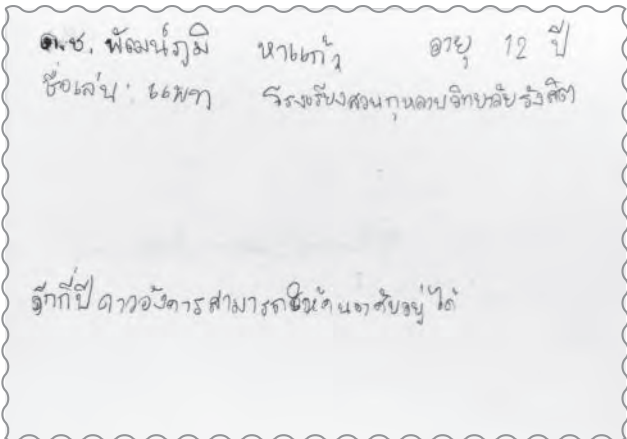 ด.ช. พัฒน์ภูมิ หาแก้ว อายุ 12 ปี
ชื่อเล่น : แพทา โรงเรียนสวนกุหลาบวิทยาลัย รังสิต
อีกกี่ปี ดาวอังคารสามารถให้คนอาศัยอยู่ได้